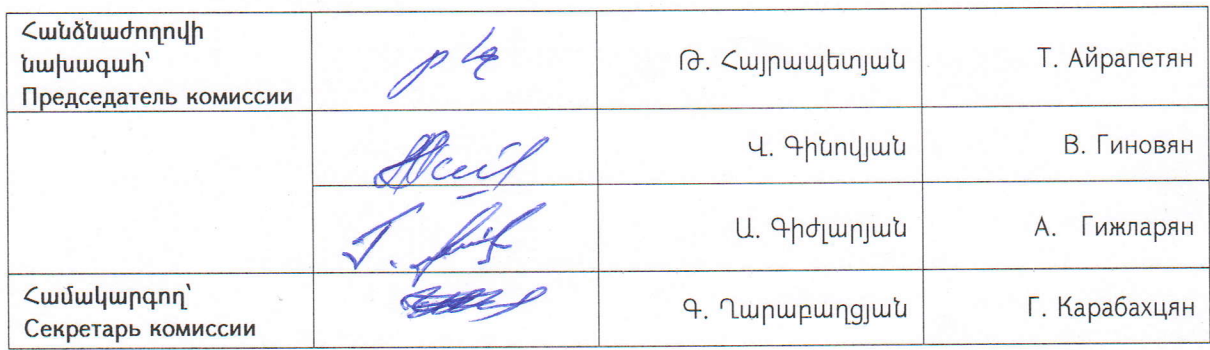 Հանձնաժողովի
նախագահ՝
Председатель комиссии
Թ. Հայրապետյան
Т. Айрапетян
Վ. Գինովյան
В. Гиновян
Ա. Գիժլարյան
А. Гижларян
Համակարգող՝
Секретарь комиссии
Գ. Ղարաբաղցյան
Г. Карабахцян